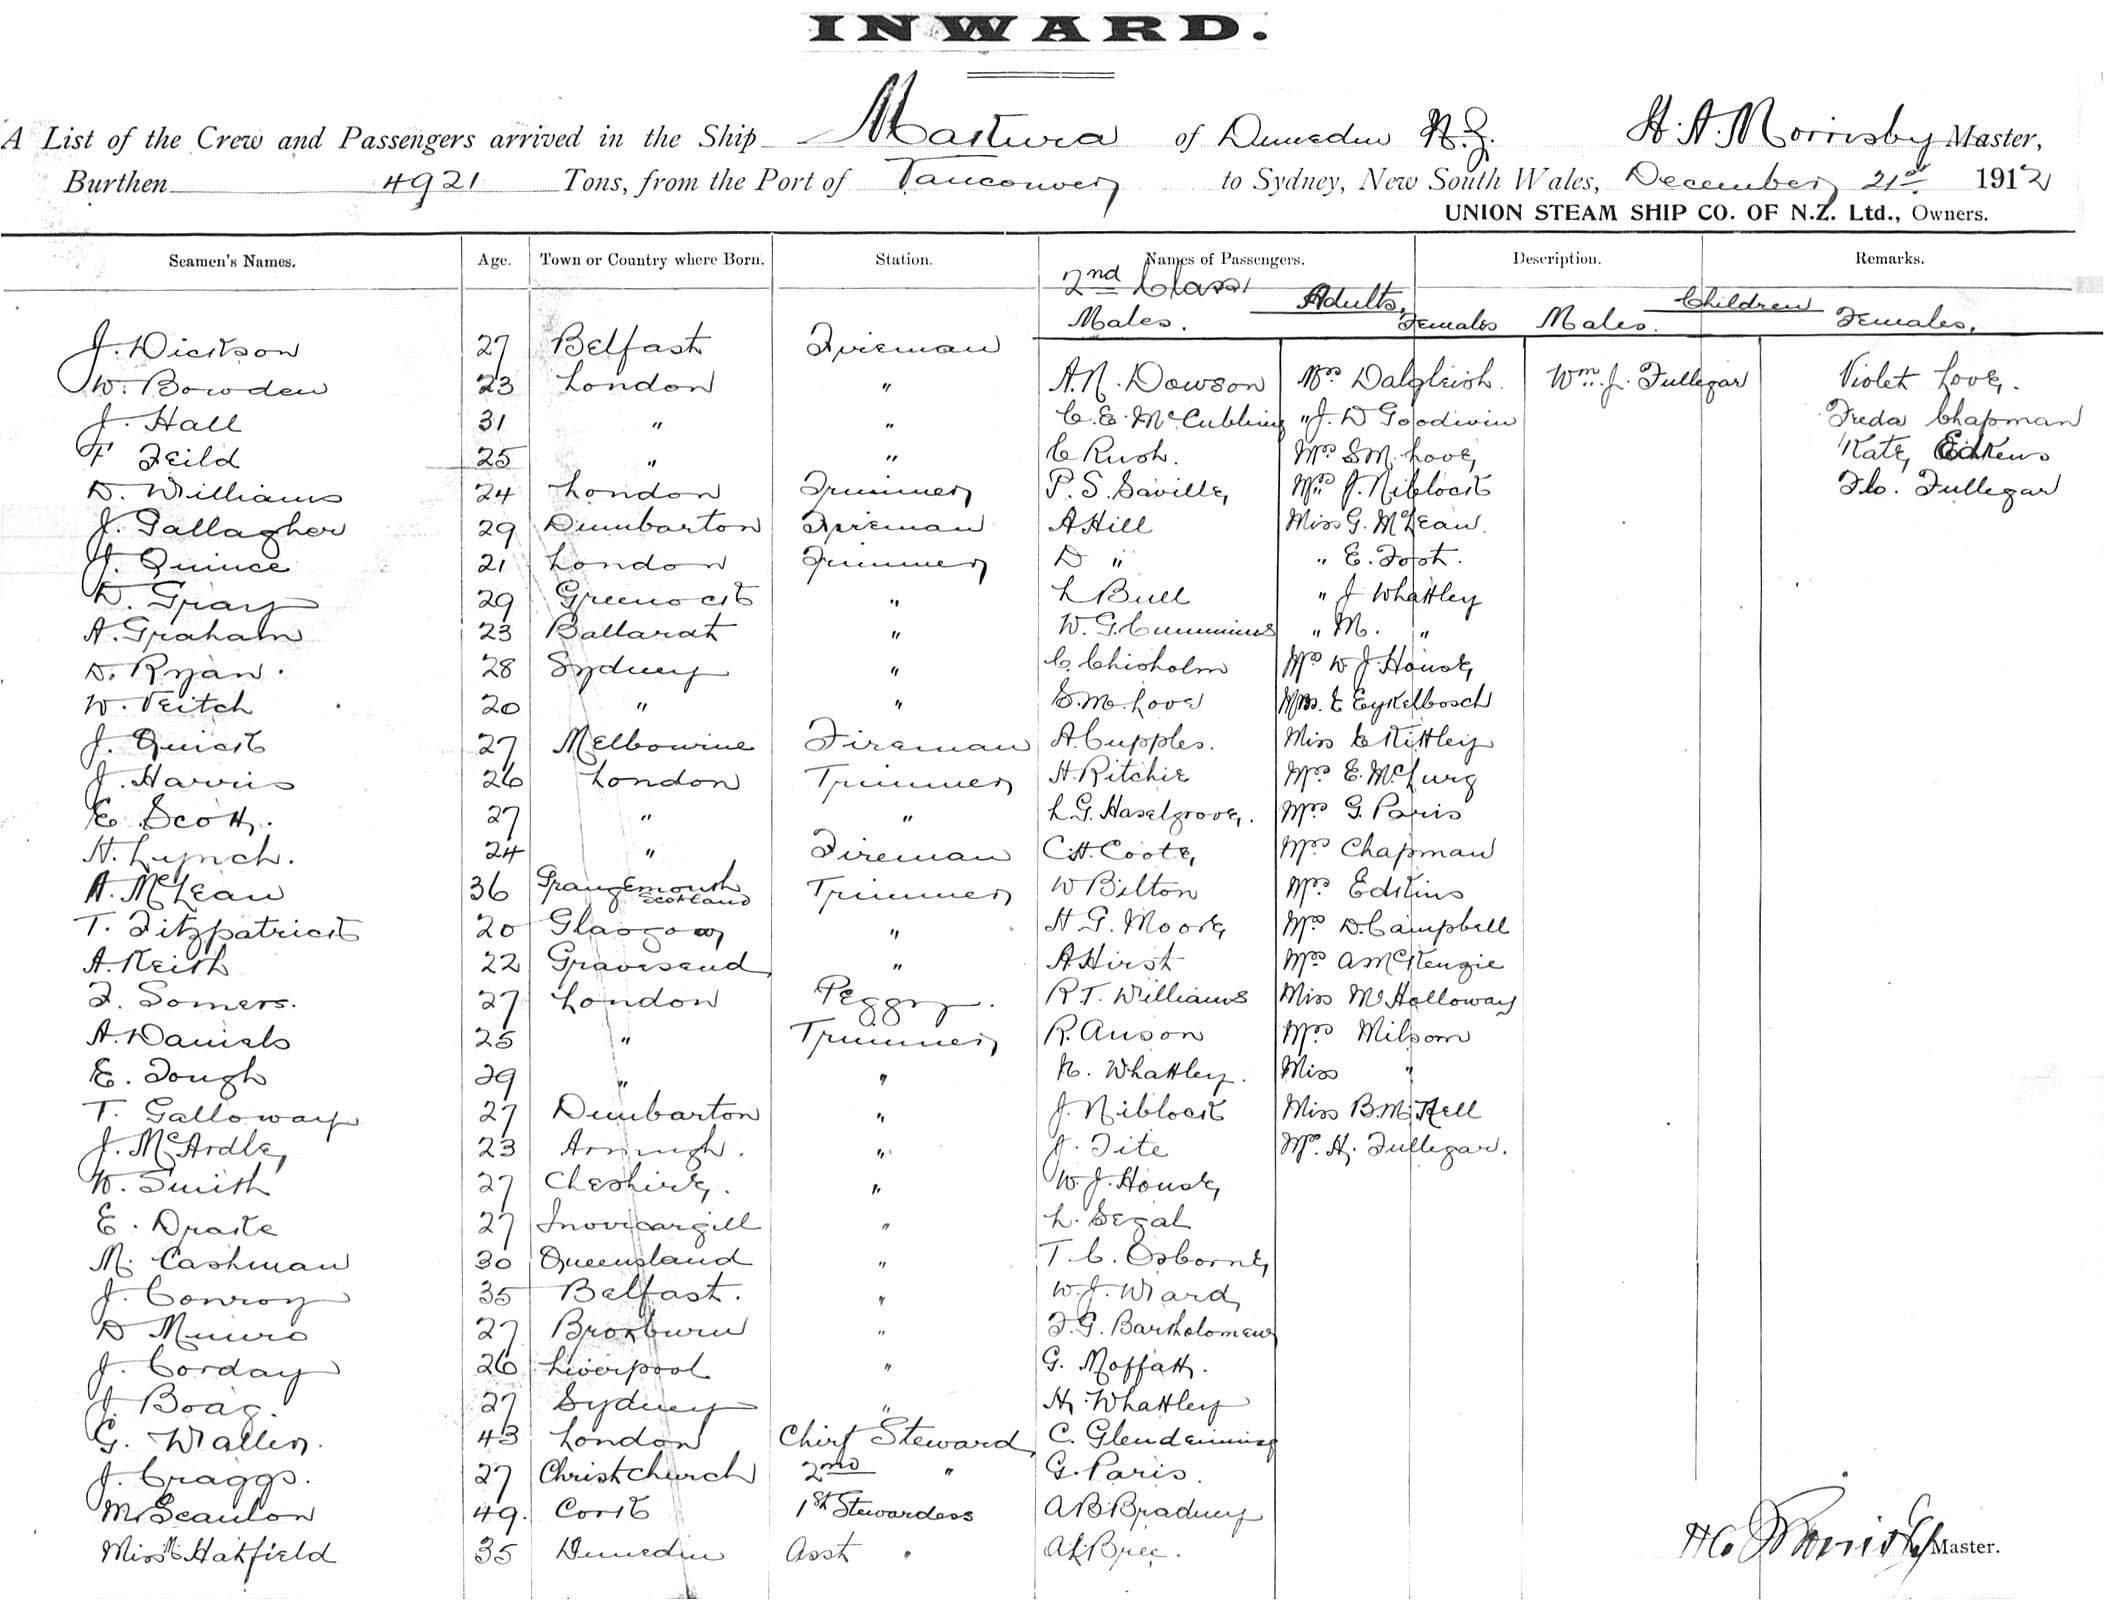 INWARD.
A List of the Crew and Passengers arrived in the Ship of Dunedin N.Z. H. A. Morrisby Master,
Burthen 4921 Tons, from the Port of Vancouver to Sydney, New South Wales, December 21st 1912
UNION STEAM SHIP CO. OF N.Z. Ltd., Owners.
Seamen's Names. Age. Town or Country where Born. Station. Names of Passengers. Description. Remarks.
2nd Class Adults, Children
Males. Females Males. Females,
J. Dickson 27 Belfast Fireman
W. Bowden 23 London " A. N. Dawson Mrs Dalgleish. Wm. J. Fullegar Violet Love.
J. Hall 31 " " C. E. McCubbing " J. D Goodwin Freda Chapman
F Feild 25 " " C Rush. Mrs S M. Love, Kate Edkins
D. Williams 24 London Trimmer P. S. Saville, Mrs J. Niblock Flo. Fullegar
J. Gallagher 29 Dumbarton Fireman A Hill Miss G. McLean.
J. Quince 21 London Trimmer D " " E. Foot.
D. Gray 29 Greenock " L Bull " J Whattley
A. Graham 23 Ballarat " W. G. Cummins " M. "
D. Ryan. 28 Sydney " C. Chisholm Mrs W J. House,
W. Veitch 20 " " S. M. Love Mrs. E Eykelbosch
J. Quick 27 Melbourne Fireman A. Cupples. Miss E Kittley
J. Harris 26 London Trimmer H. Ritchie Mrs E. McLurg
E. Scott. 27 " " L G. Haselgrove. Mrs G. Paris
H. Lynch. 24 " Fireman C. H. Coote, Mrs Chapman
A. McLean 36 Grangemouth Scotland Trimmer W Bilton Mrs Edkins
T. Fitzpatrick 20 Glasgow " H G. Moore, Mrs D. Campbell
A. Keith 22 Gravesend " A Hirst Mrs A McKenzie
F. Somers. 27 London Peggy. R. T. Williams Miss M Holloway
A. Daniels 25 " Trimmer R. Anson Mrs Milsom
E. Tough 29 " " N. Whattley. Miss "
T. Galloway 27 Dumbarton " J. Niblock Miss B. M. Kell
J. McArdle, 23 " J. Tite Mrs. H. Fullegar.
W. Smith 27 Cheshire. " W. J. House,
E. Drake 27 Invercargill " L. Segal
M. Cashman 30 Queensland " T. C. Osborne,
J. Conroy 35 Belfast. " W. J. Ward,
D Munro 27 Broxburn " F. G. Bartholomew
J. Corday 26 Liverpool " G. Moffatt.
J. Boag. 27 Sydney " H. Whattley
G. Waller. 43 London Chief Steward C. Glendenning
J. Craggs. 27 Christchurch 2nd " G. Paris.
M Scanlon 49. Cork 1st Stewardess A B Bradney
Miss M Hatfield 35 Dunedin Asst " A L Bree.
Master.